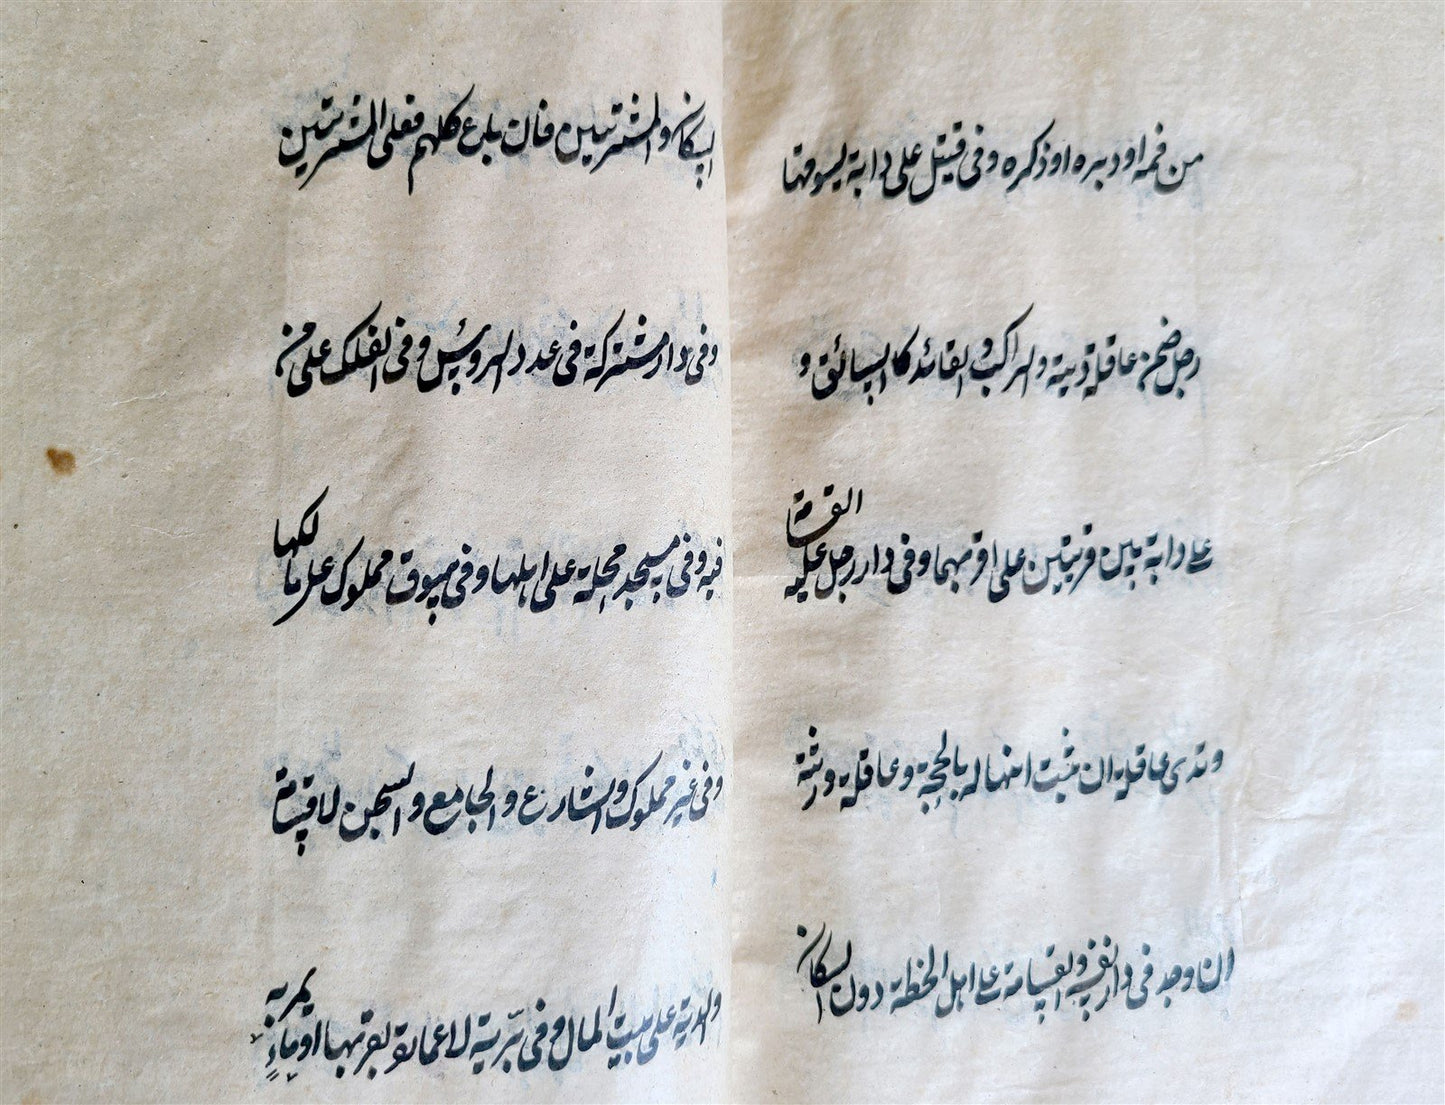 من فمه او دبره او ذكره وفى قتيل على دابة يسوقها
رجل ضمن عاقلته ديته والراكب والقائد كالسائق و
على دابة بين قريتين على اقربهما وفى دار رجل عليه القسامة
وتدى عاقلته ان ثبت انها له بالحجة وعاقلته ورثته
ان وجد فى دار نفسه والقسامة على اهل الخطة دون السكان
السكان والمشتريين فان باع كلهم فعلى المشتريين
وفى دار مشتركة فى عدد الروس وفى الفلك على من
فيه وفى مسجد محلة على اهلها وفى سوق مملوك على مالكها
وفى غير مملوك والشارع والجامع والسجن لا قسامة
والدية على بيت المال وفى برية لا عمارة بقربها او ماءٍ يمر به